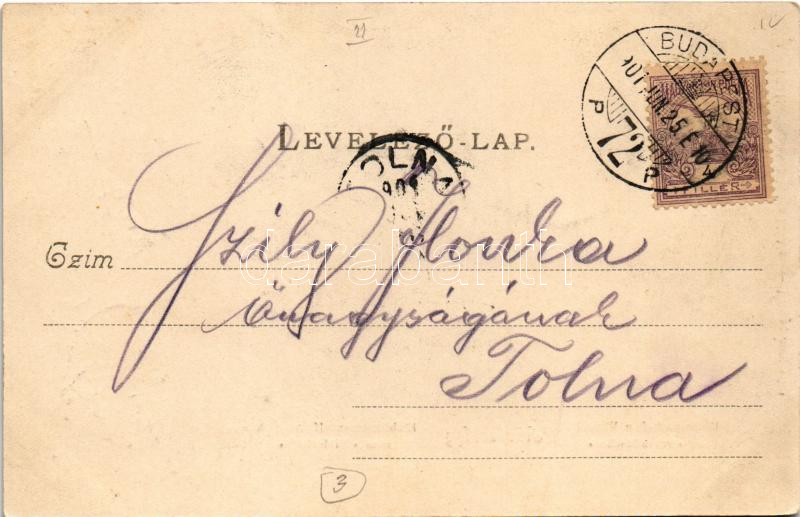 LEVELEZŐ-LAP.
BUDAPEST
901 JUN. 25 E 10
72
P P
FILLÉR
TOLNA
901
Czim Szily Ilonka
Önagyságának
Tolna
3
darabanth